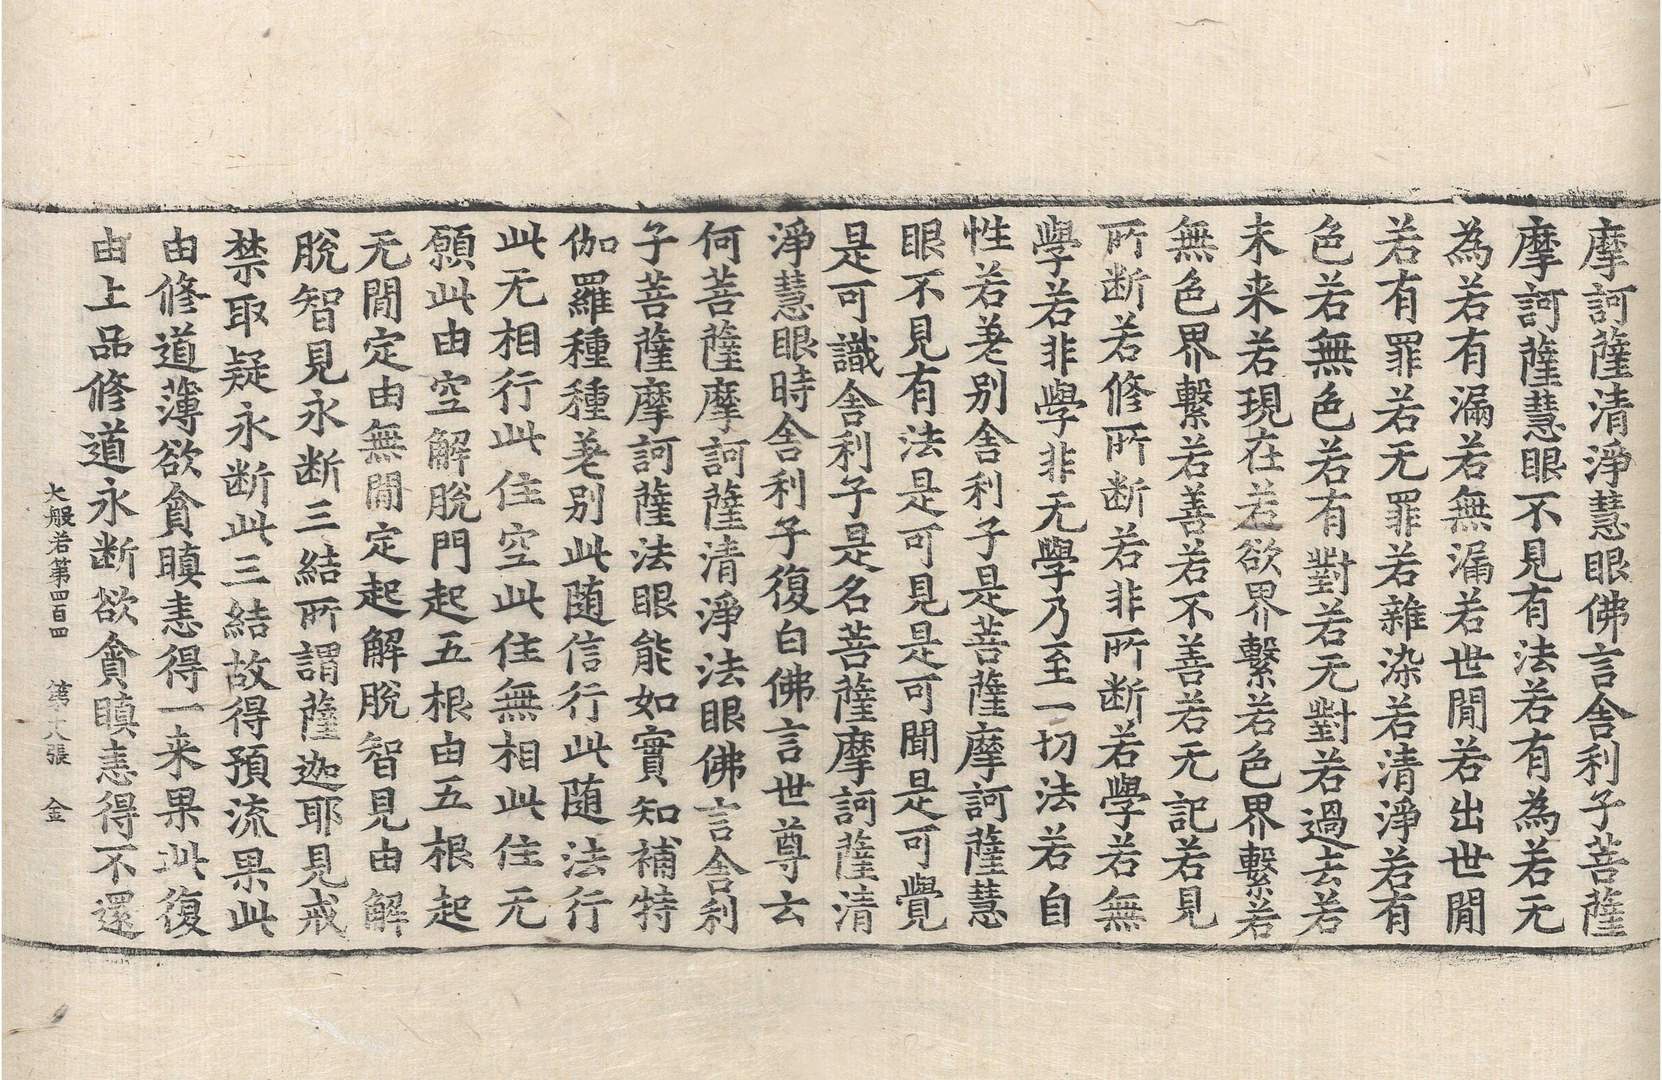 摩訶薩清淨慧眼佛言舍利子菩薩
摩訶薩慧眼不見有法若有為若无
為若有漏若無漏若世閒若出世閒
若有罪若无罪若雜染若清淨若有
色若無色若有對若无對若過去若
未来若現在若欲界繫若色界繫若
無色界繫若善若不善若无記若見
所断若修所断若非所断若學若無
學若非學非无學乃至一切法若自
性若差别舍利子是菩薩摩訶薩慧
眼不見有法是可見是可聞是可覺
是可識舍利子是名菩薩摩訶薩清
淨慧眼時舍利子復白佛言世尊云
何菩薩摩訶薩清淨法眼佛言舍利
子菩薩摩訶薩法眼能如實知補特
伽羅種種差别此随信行此随法行
此无相行此住空此住無相此住无
願此由空解脫門起五根由五根起
无閒定由無閒定起解脫智見由解
脫智見永断三結所謂薩迦耶見戒
禁取疑永断此三結故得預流果此
由修道薄欲貪瞋恚得一来果此復
由上品修道永断欲貪瞋恚得不還
大般若第四百四 第六張 金